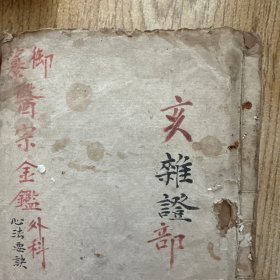 御
纂醫宗金鑑外科
心法要訣
亥雜證部